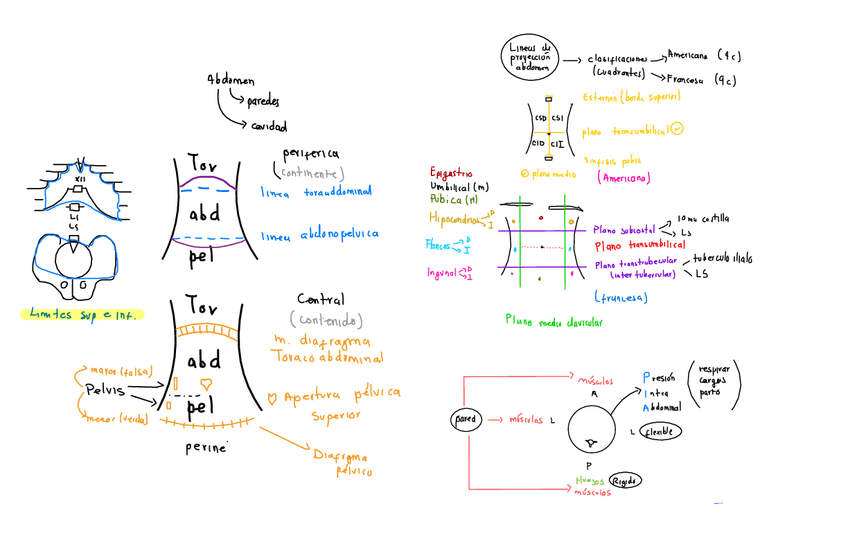 Abdomen
paredes
cavidad
Tor
abd
pel
periferica
(continente)
linea toraddominal
linea abdonopelvica
XII
L1
L5
Limites Sup e Inf.
Tor
abd
pel
Central
(contenido)
m. diafragma
Toraco abdominal
♡ Apertura pélvica
Superior
mayor (falsa)
Pelvis
menor (verda)
periné
Diafrgma
pélvico
Lineas de
proyección
abdomen
clasificaciones
(cuadrantes)
Americana (4c)
Francesa (9c)
CSD CSI
CID CII
Esternón (borde superior)
plano transumbilical
Sinfisis pubis
plano medio
(Americana)
Epigastrio
Umbilical (m)
Púbica (H)
Hipocondrios D
I
Flancos D
I
Inguinal D
I
Plano subcostal
10ma costilla
L3
Plano transumbilical
Plano transtrubecular
(intertubercular)
tuberculo iliaco
L5
(francesa)
Plano medio clavicular
pared
músculos
A
músculos L
L flexible
P
Huesos Rigido
músculos
Presión
Intra
Abdominal
respirar
cargos
parto